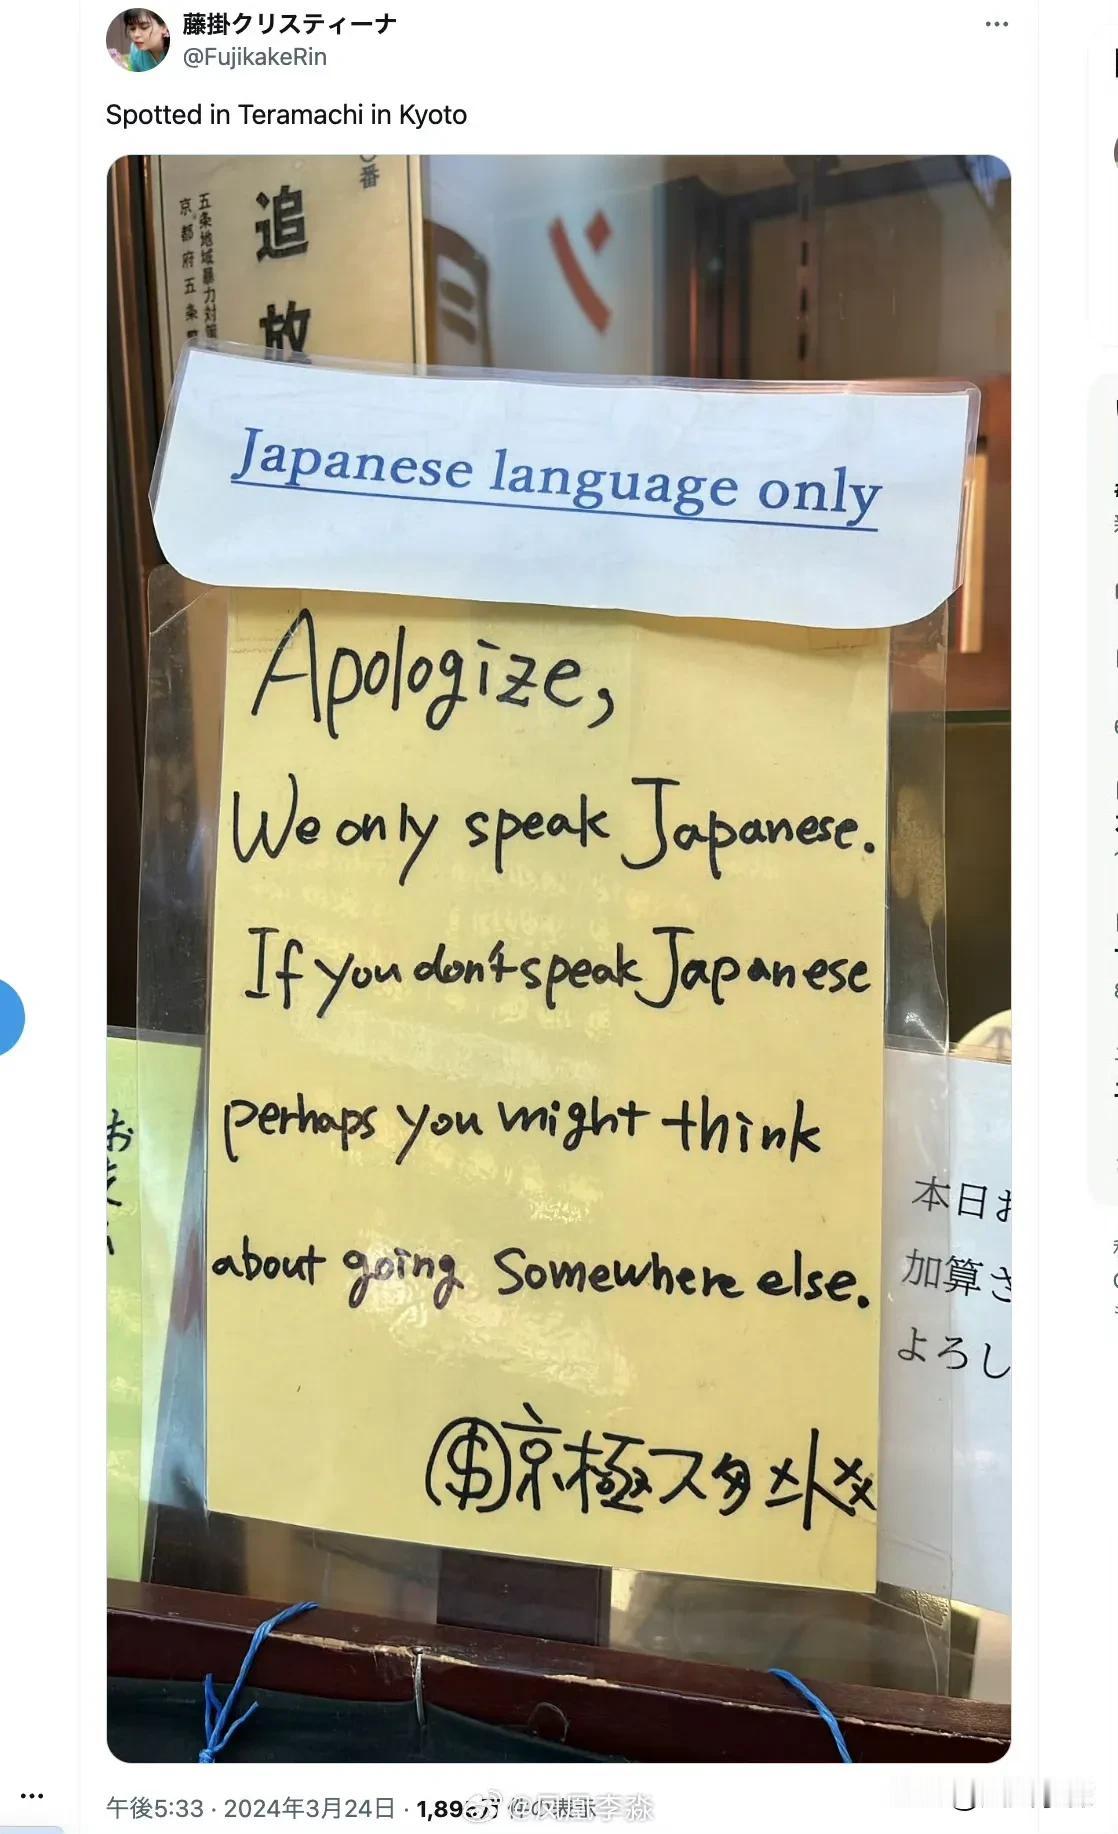 藤掛クリスティーナ
@FujikakeRin
Spotted in Teramachi in Kyoto
〇番
追放
五条地域暴力対策
京都府五条
Japanese language only
Apologize,
We only speak Japanese.
If you don't speak Japanese
perhaps you might think
about going Somewhere else.
京極スタンド
お
本日お
加算さ
よろし
午後5:33 · 2024年3月24日 · 1,89 件の表示
@凤凰李淼